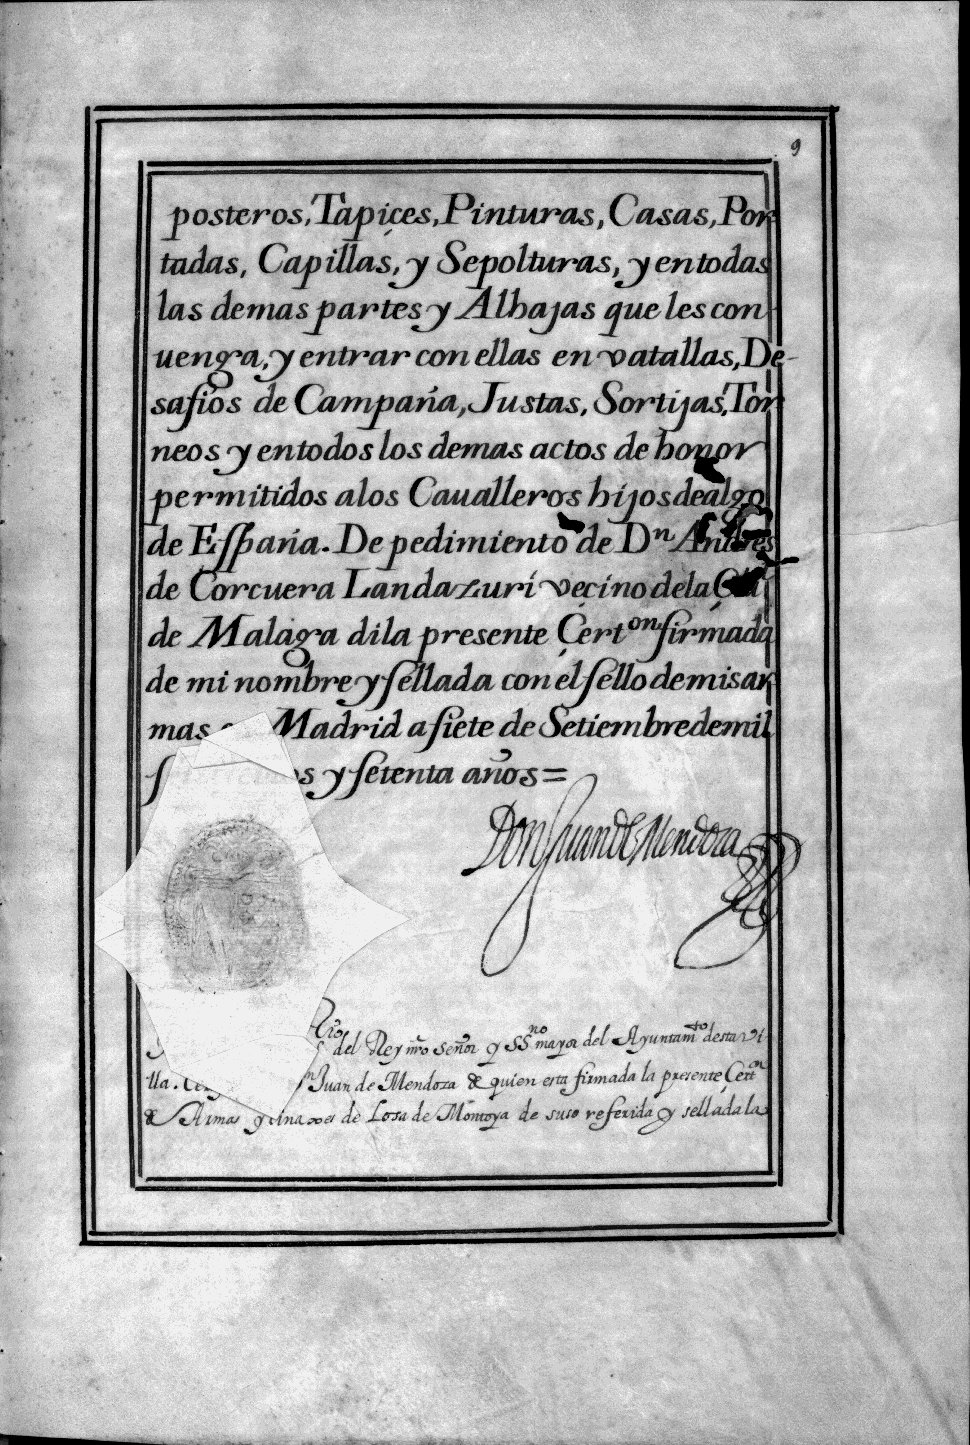 9
posteros, Tapiçes, Pinturas, Casas, Por-
tadas, Capillas, y Sepolturas, y en todas
las demas partes y Alhajas que les con-
uenga, y entrar con ellas en vatallas, De-
safios de Campaña, Justas, Sortijas, Tor-
neos y en todos los demas actos de honor
permitidos a los Caualleros hijos de algo
de España. De pedimiento de Dn Andres
de Corcuera Landazuri veçino de la
de Malaga di la presente Çerton firmada
de mi nombre y sellada con el sello de mis ar-
mas Madrid a siete de Setiembre de mil
y setenta años =
Don Juan de Mendoza
del Rey nro señor y SSno mayor del Ayuntamto desta vi-
lla. Juan de Mendoza de quien esta firmada la presente Çerton
de Armas y de Losa de Montoya de suso referida y sellada la